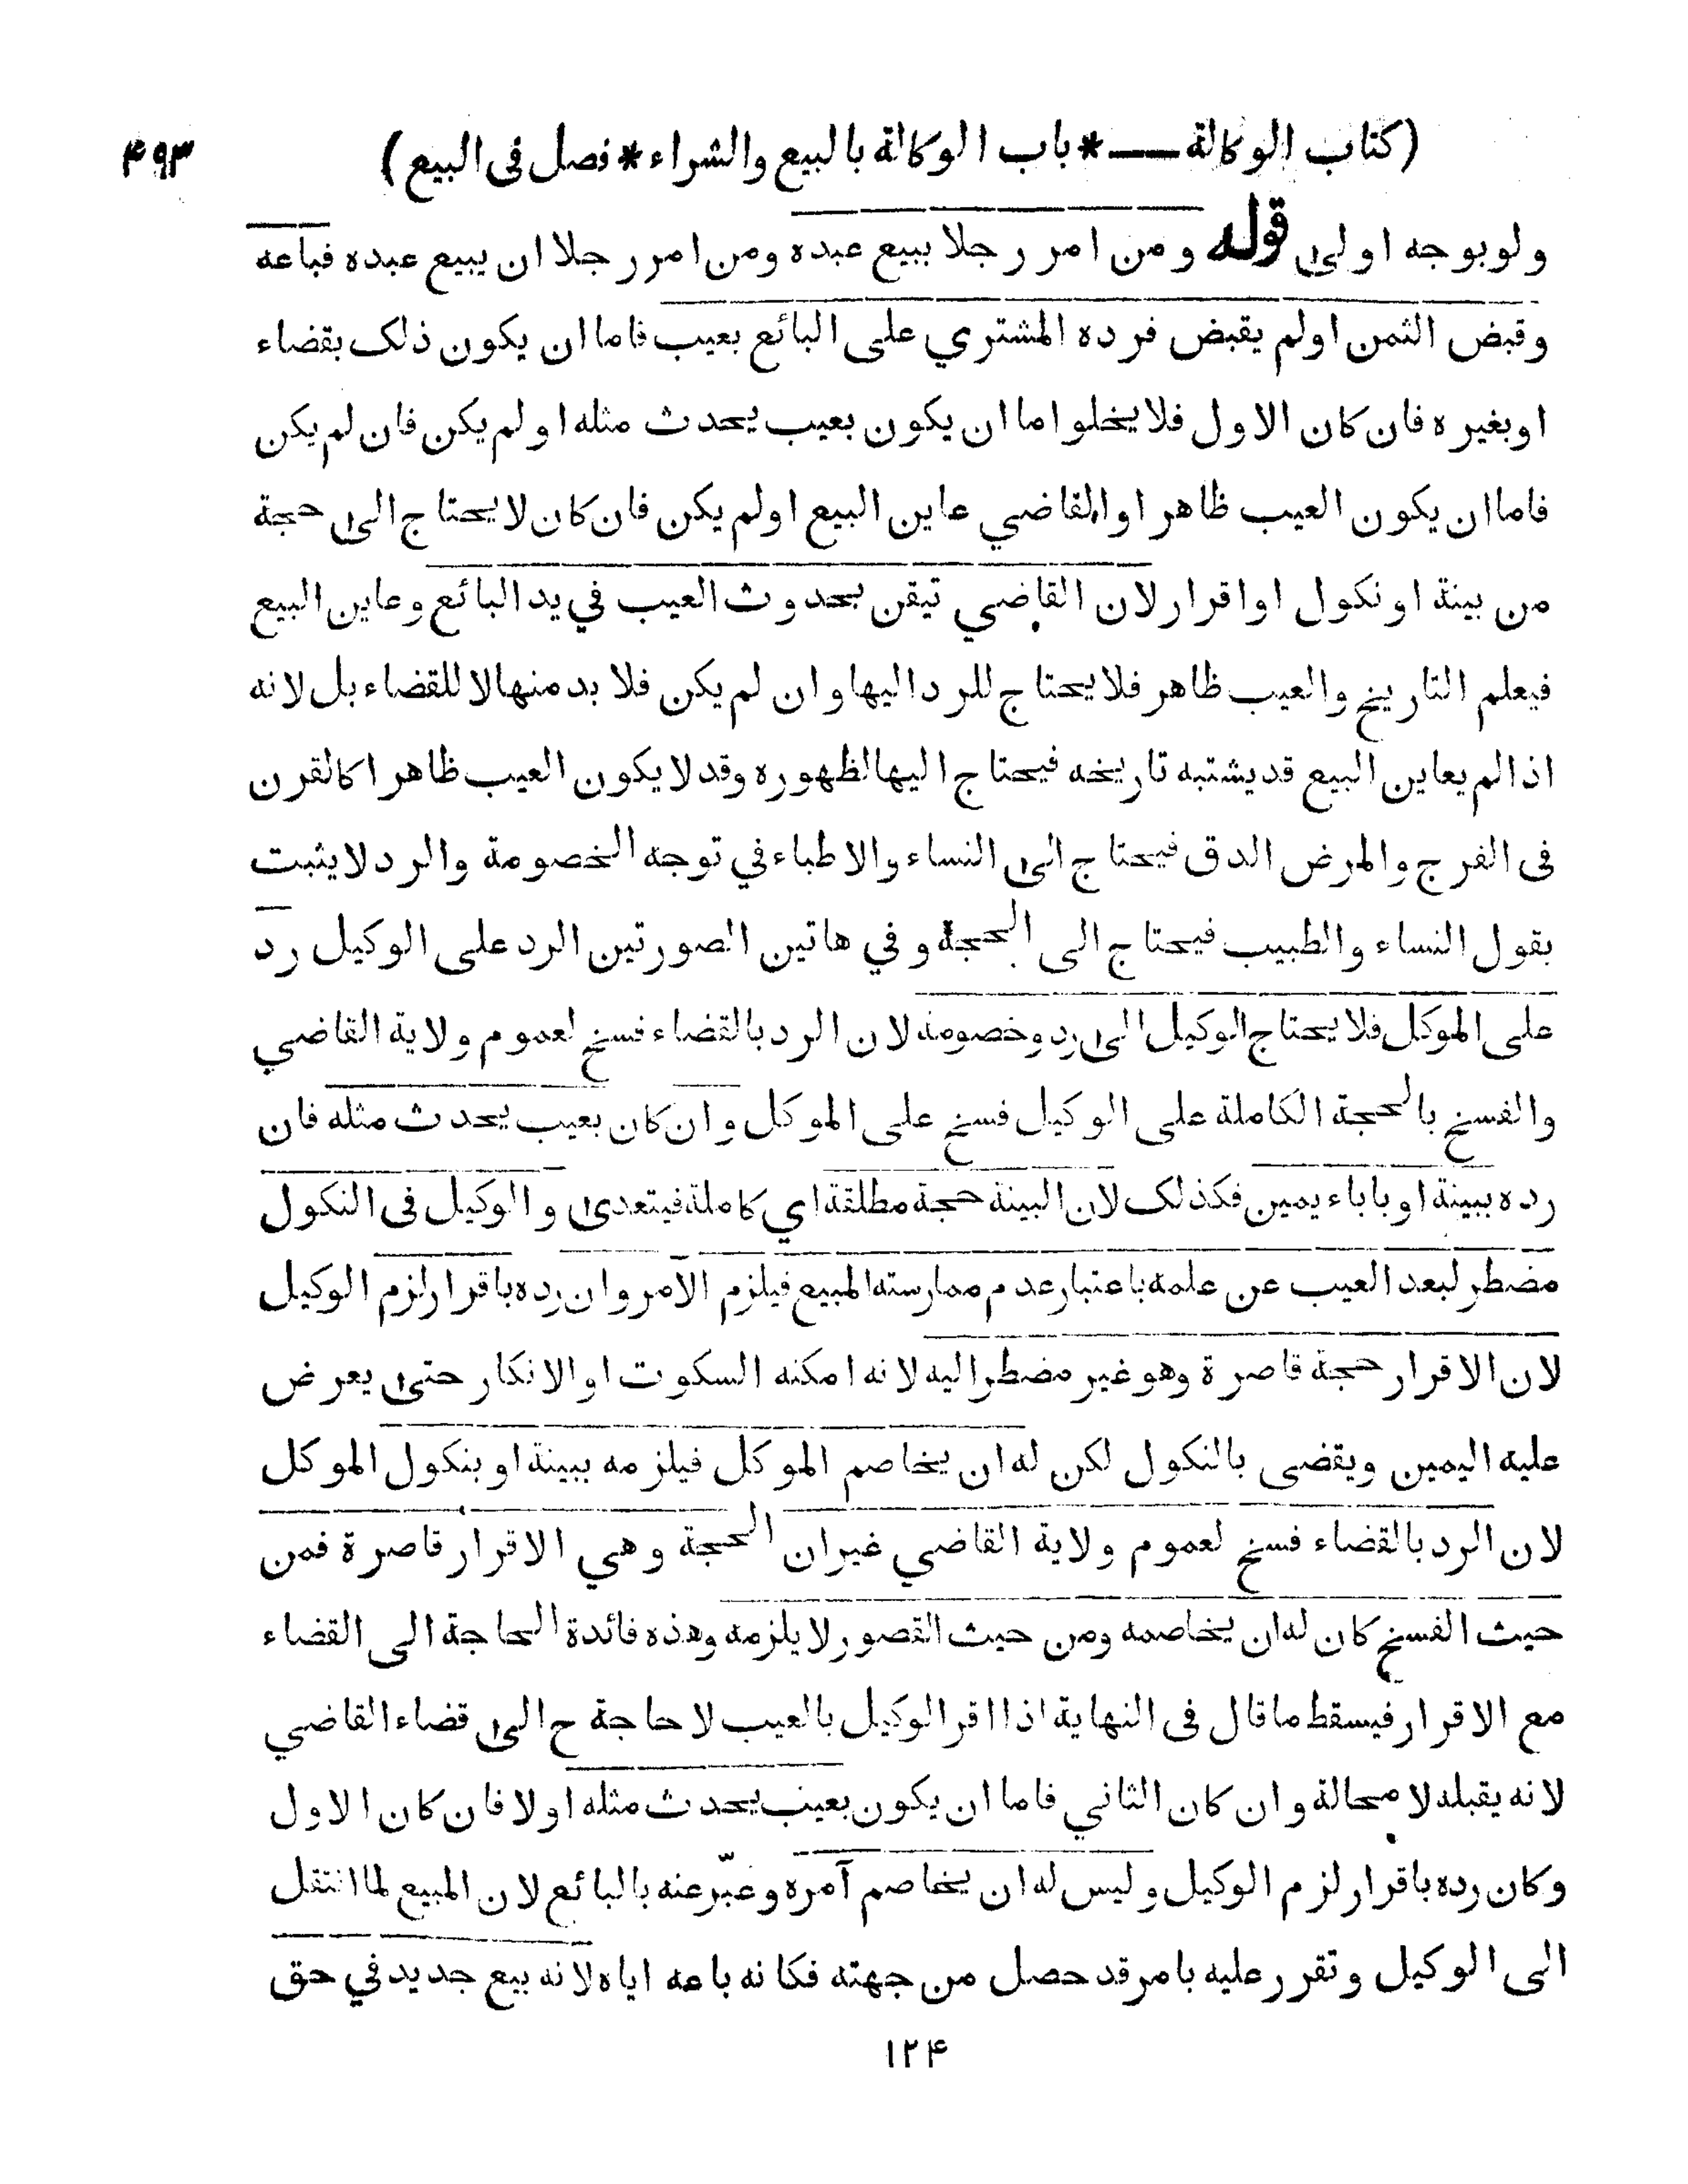 (كتاب الوكالة — * باب الوكالة بالبيع والشراء * فصل فى البيع) ۴۹۳
ولو بوجه اولى قوله ومن امر رجلا ببيع عبده ومن امر رجلا ان يبيع عبده فباعه
وقبض الثمن اولم يقبض فرده المشتري على البائع بعيب فاما ان يكون ذلك بقضاء
اوبغيره فان كان الاول فلا يخلوا ما ان يكون بعيب يحدث مثله اولم يكن فان لم يكن
فاما ان يكون العيب ظاهرا والقاضي عاين البيع اولم يكن فان كان لا يحتاج الى حجة
من بينة او نكول او اقرار لان القاضي تيقن بحدوث العيب في يد البائع وعاين البيع
فيعلم التاريخ والعيب ظاهر فلا يحتاج للرد اليها وان لم يكن فلا بد منها لا للقضاء بل لانه
اذا لم يعاين البيع قد يشتبه تاريخه فيحتاج اليها لظهوره وقد لا يكون العيب ظاهرا كالقرن
فى الفرج والمرض الدق فيحتاج الى النساء والاطباء في توجه الخصومة والرد لا يثبت
بقول النساء والطبيب فيحتاج الى الحجة وفي هاتين الصورتين الرد على الوكيل رد
على الموكل فلا يحتاج الوكيل الى رد وخصومة لان الرد بالقضاء فسخ لعموم ولاية القاضي
والفسخ بالحجة الكاملة على الوكيل فسخ على الموكل وان كان بعيب يحدث مثله فان
رده ببينة او باباء يمين فكذلك لان البينة حجة مطلقة اي كاملة فيتعدى والوكيل فى النكول
مضطر لبعد العيب عن علمه باعتبار عدم ممارسته المبيع فيلزم الآمر وان رده باقرار لزم الوكيل
لان الاقرار حجة قاصرة وهو غير مضطر اليه لانه امكنه السكوت او الانكار حتى يعرض
عليه اليمين ويقضى بالنكول لكن له ان يخاصم الموكل فيلزمه ببينة او بنكول الموكل
لان الرد بالقضاء فسخ لعموم ولاية القاضي غير ان الحجة وهي الاقرار قاصرة فمن
حيث الفسخ كان له ان يخاصمه ومن حيث القصور لا يلزمه وهذه فائدة الحاجة الى القضاء
مع الاقرار فيسقط ما قال فى النهاية اذا اقر الوكيل بالعيب لا حاجة ح الى قضاء القاضي
لانه يقبله لا محالة وان كان الثاني فاما ان يكون بعيب يحدث مثله اولا فان كان الاول
وكان رده باقرار لزم الوكيل وليس له ان يخاصم آمره وعبّر عنه بالبائع لان المبيع لما انتقل
الى الوكيل وتقرر عليه بامر قد حصل من جهته فكانه باعه اياه لانه بيع جديد في حق
۱۲۴